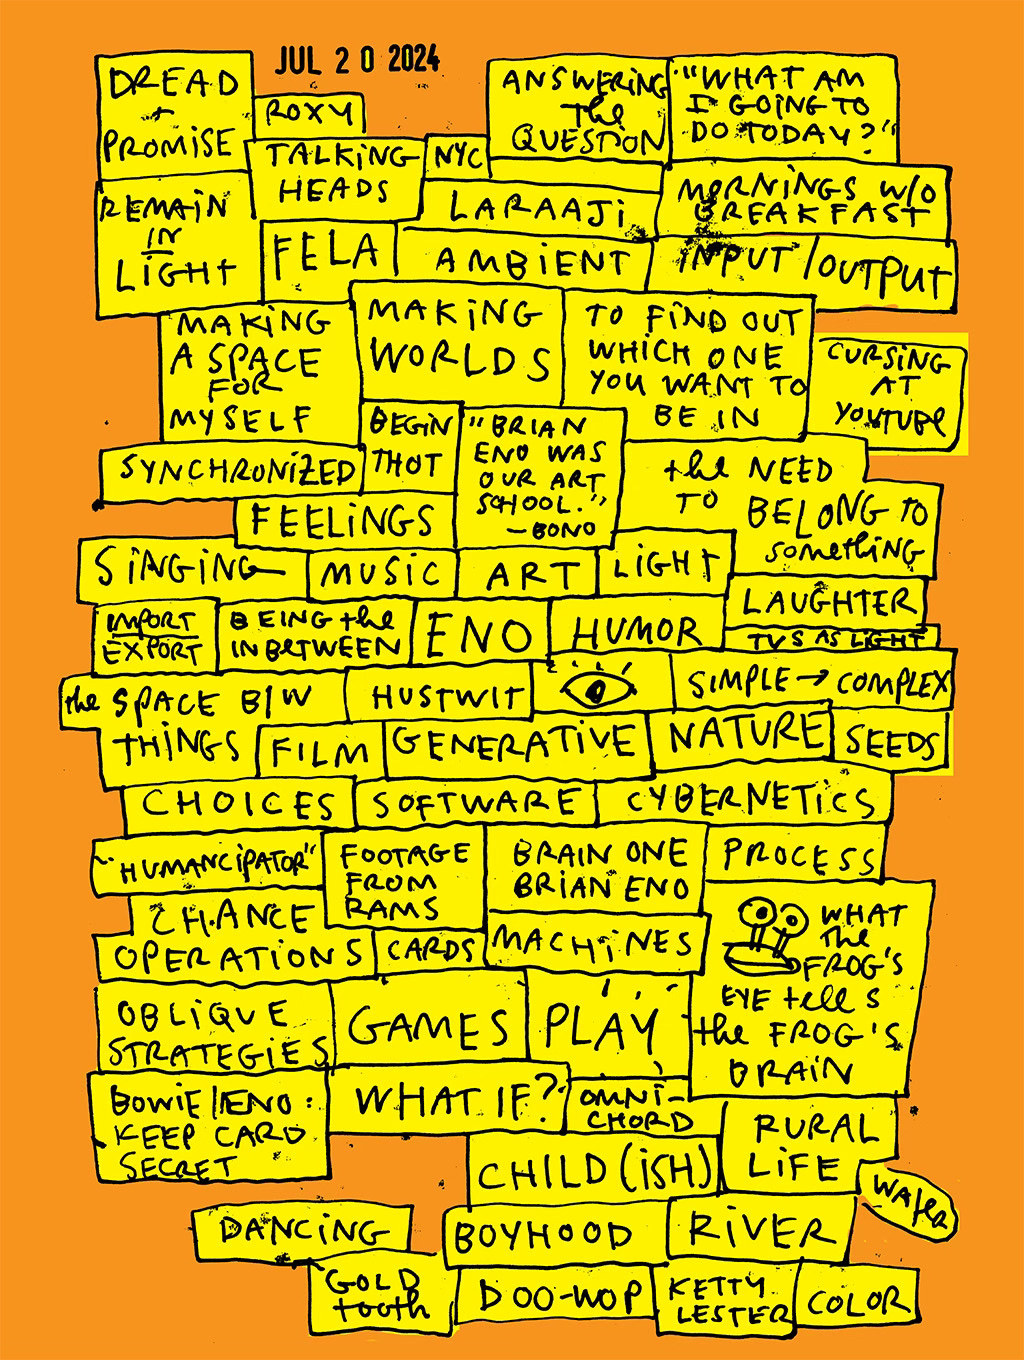 JUL 20 2024
DREAD
+
PROMISE
ROXY
ANSWERING
the
QUESTION
"WHAT AM
I GOING TO
DO TODAY?"
TALKING
HEADS
NYC
REMAIN
IN
LIGHT
LARAAJI
MORNINGS W/O
BREAKFAST
FELA
AMBIENT
INPUT/OUTPUT
MAKING
A SPACE
FOR
MYSELF
MAKING
WORLDS
TO FIND OUT
WHICH ONE
YOU WANT TO
BE IN
CURSING
AT
YOUTUBE
BEGIN
THOT
"BRIAN
ENO WAS
OUR ART
SCHOOL."
—BONO
SYNCHRONIZED
FEELINGS
the NEED
TO BELONG TO
something
SINGING
MUSIC
ART
LIGHT
LAUGHTER
IMPORT
EXPORT
BEING the
IN BETWEEN
ENO
HUMOR
TVS AS LIGHT
the SPACE B/W
THINGS
HUSTWIT
SIMPLE → COMPLEX
FILM
GENERATIVE
NATURE
SEEDS
CHOICES
SOFTWARE
CYBERNETICS
"HUMANCIPATOR"
FOOTAGE
FROM
RAMS
BRAIN ONE
BRIAN ENO
PROCESS
CHANCE
OPERATIONS
CARDS
MACHINES
WHAT
the
FROG'S
EYE tells
the FROG'S
BRAIN
OBLIQUE
STRATEGIES
GAMES
PLAY
BOWIE/ENO:
KEEP CARD
SECRET
WHAT IF?
OMNI-
CHORD
CHILD(ISH)
RURAL
LIFE
WATER
DANCING
BOYHOOD
RIVER
GOLD
tooth
DOO-WOP
KETTY
LESTER
COLOR